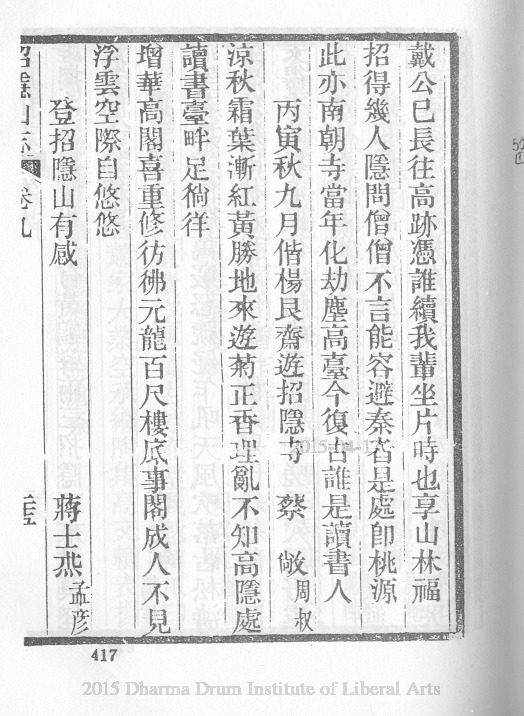 戴公已長往高跡憑誰續我輩坐片時也享山林福
招得幾人隱問僧僧不言能容避秦者是處卽桃源
此亦南朝寺當年化劫塵高臺今復古誰是讀書人
丙寅秋九月偕楊艮齋遊招隱寺 蔡 敞 周叔
涼秋霜葉漸紅黃勝地來遊菊正香理亂不知高隱處
讀書臺畔足徜徉
增華高閣喜重修彷彿元龍百尺樓底事閣成人不見
浮雲空際自悠悠
登招隱山有感 蔣士燕 孟彦
招隱山志 卷九
417
2015 Dharma Drum Institute of Liberal Arts